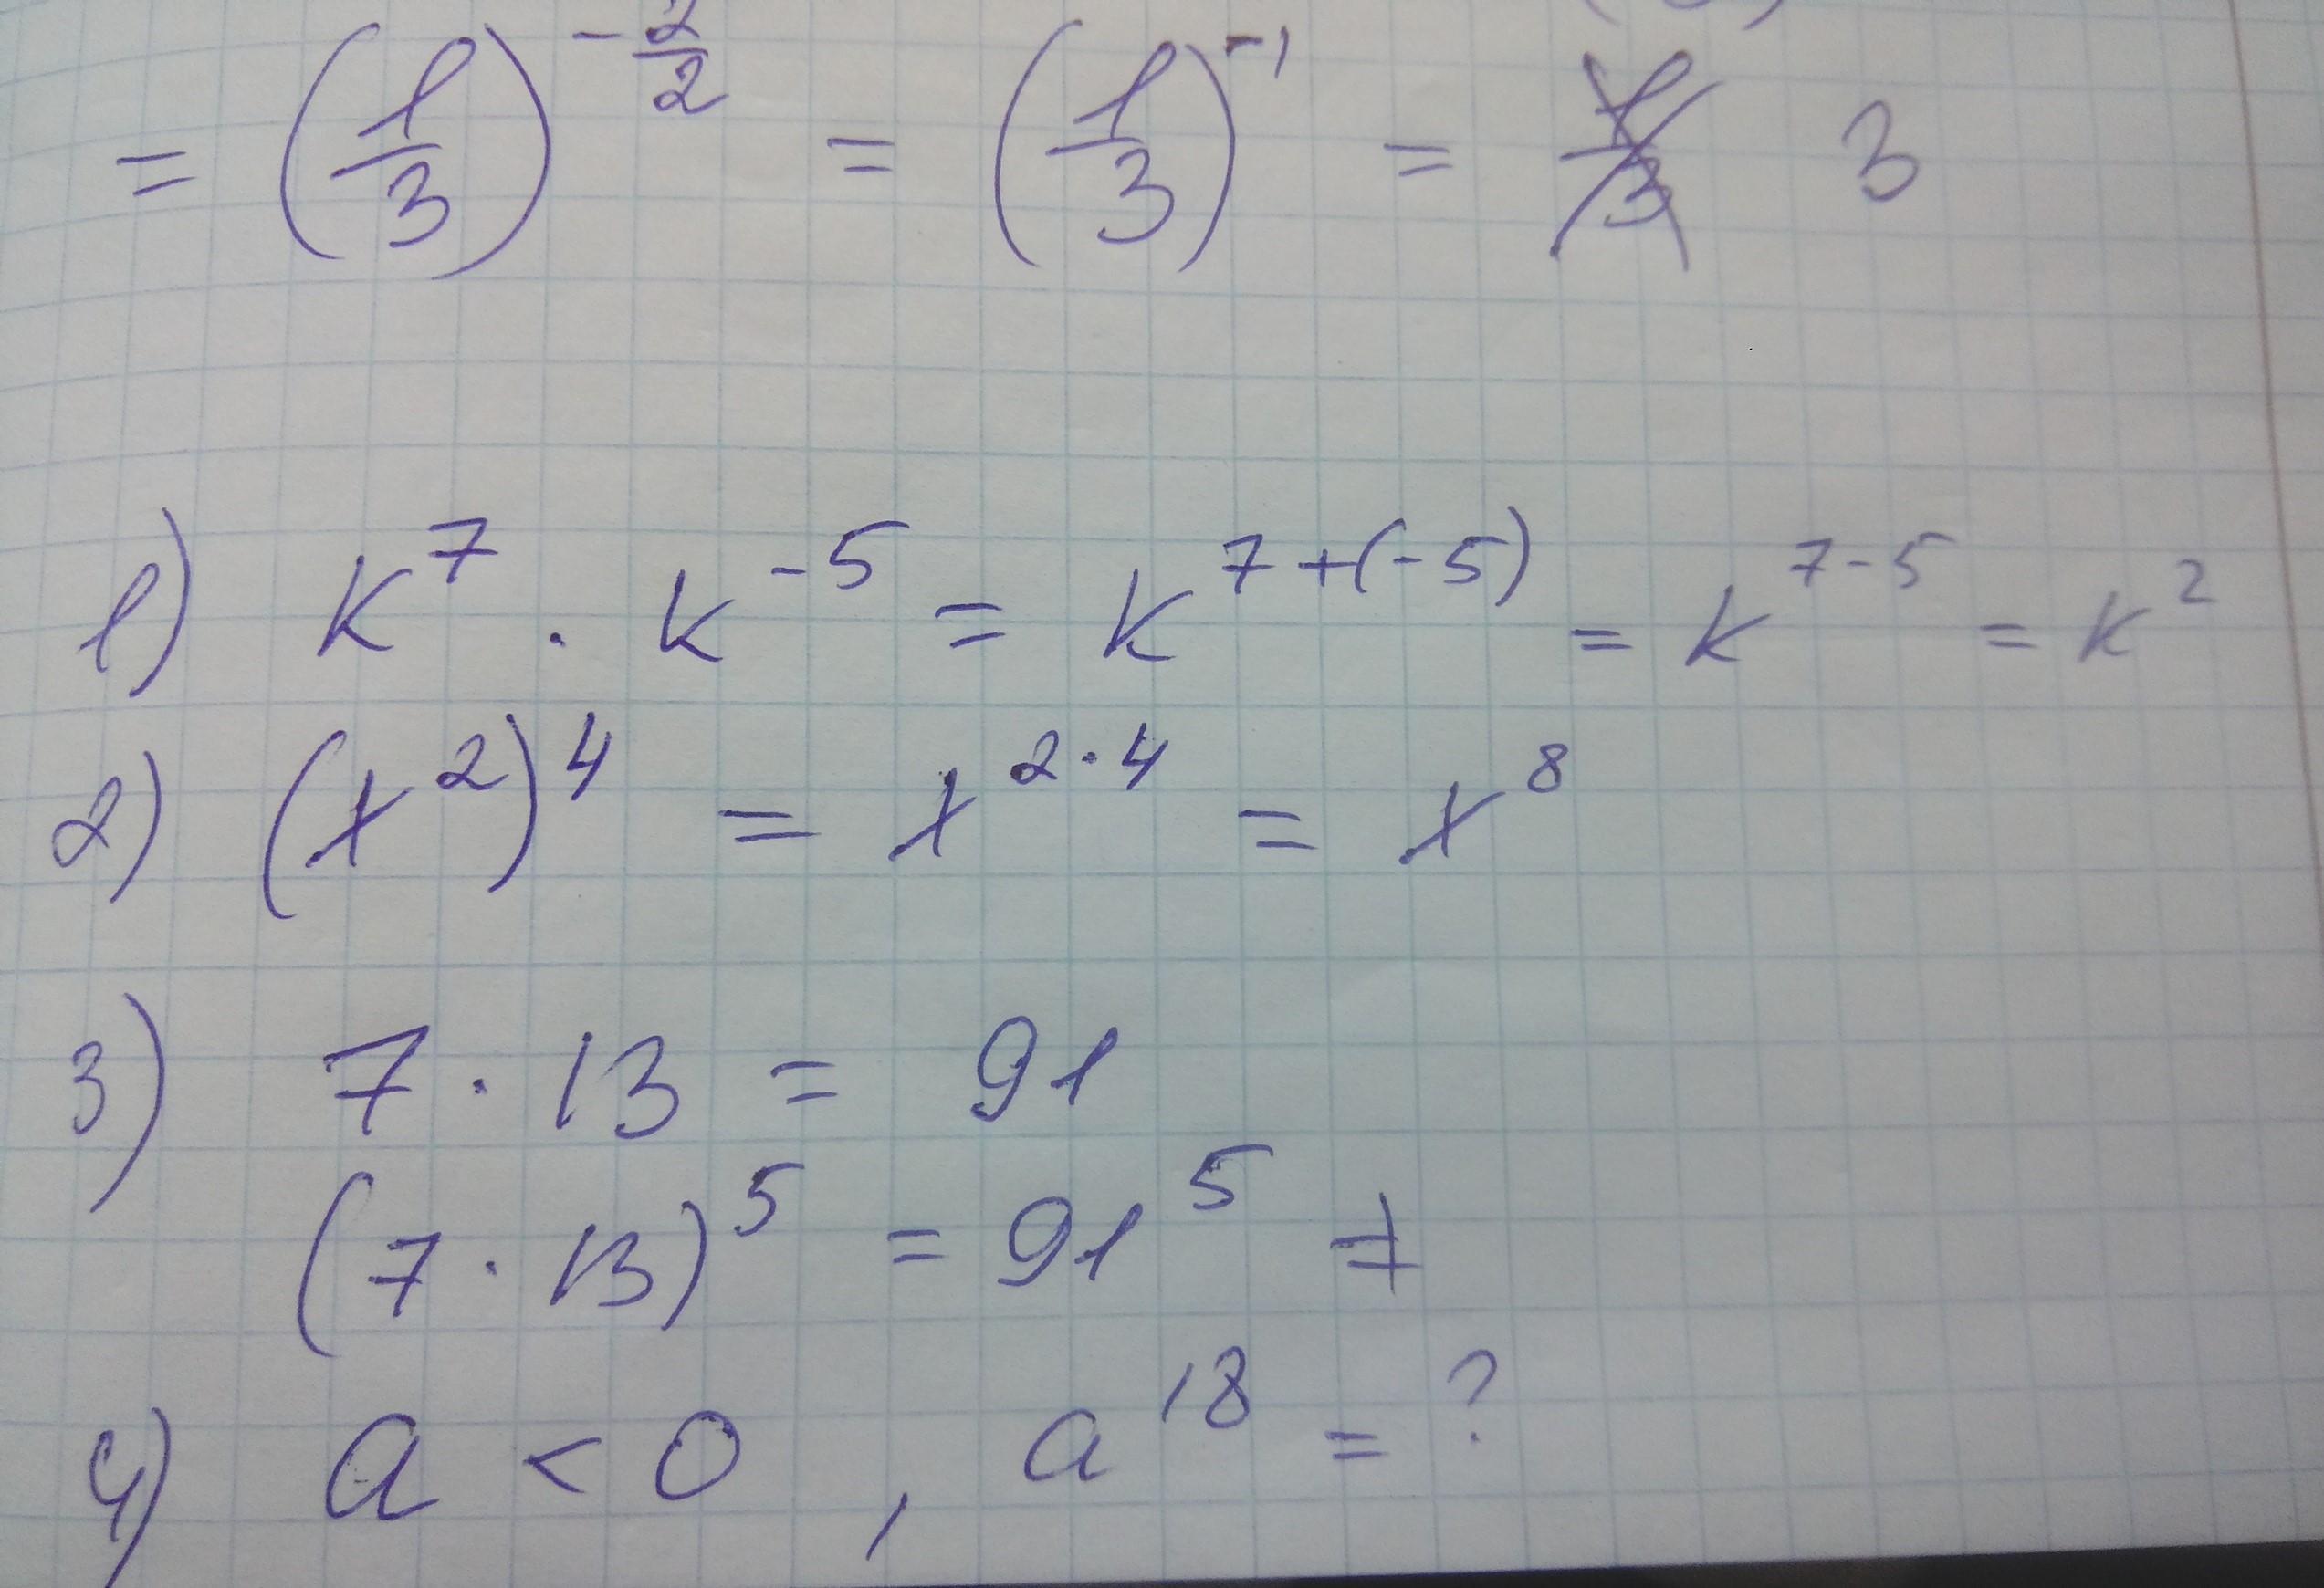 = (1/3)^(-2/2) = (1/3)^(-1) = 3
1) k^7 · k^(-5) = k^(7+(-5)) = k^(7-5) = k^2
2) (x^2)^4 = x^(2·4) = x^8
3) 7 · 13 = 91
(7 · 13)^5 = 91^5 =
4) a < 0 , a^18 = ?